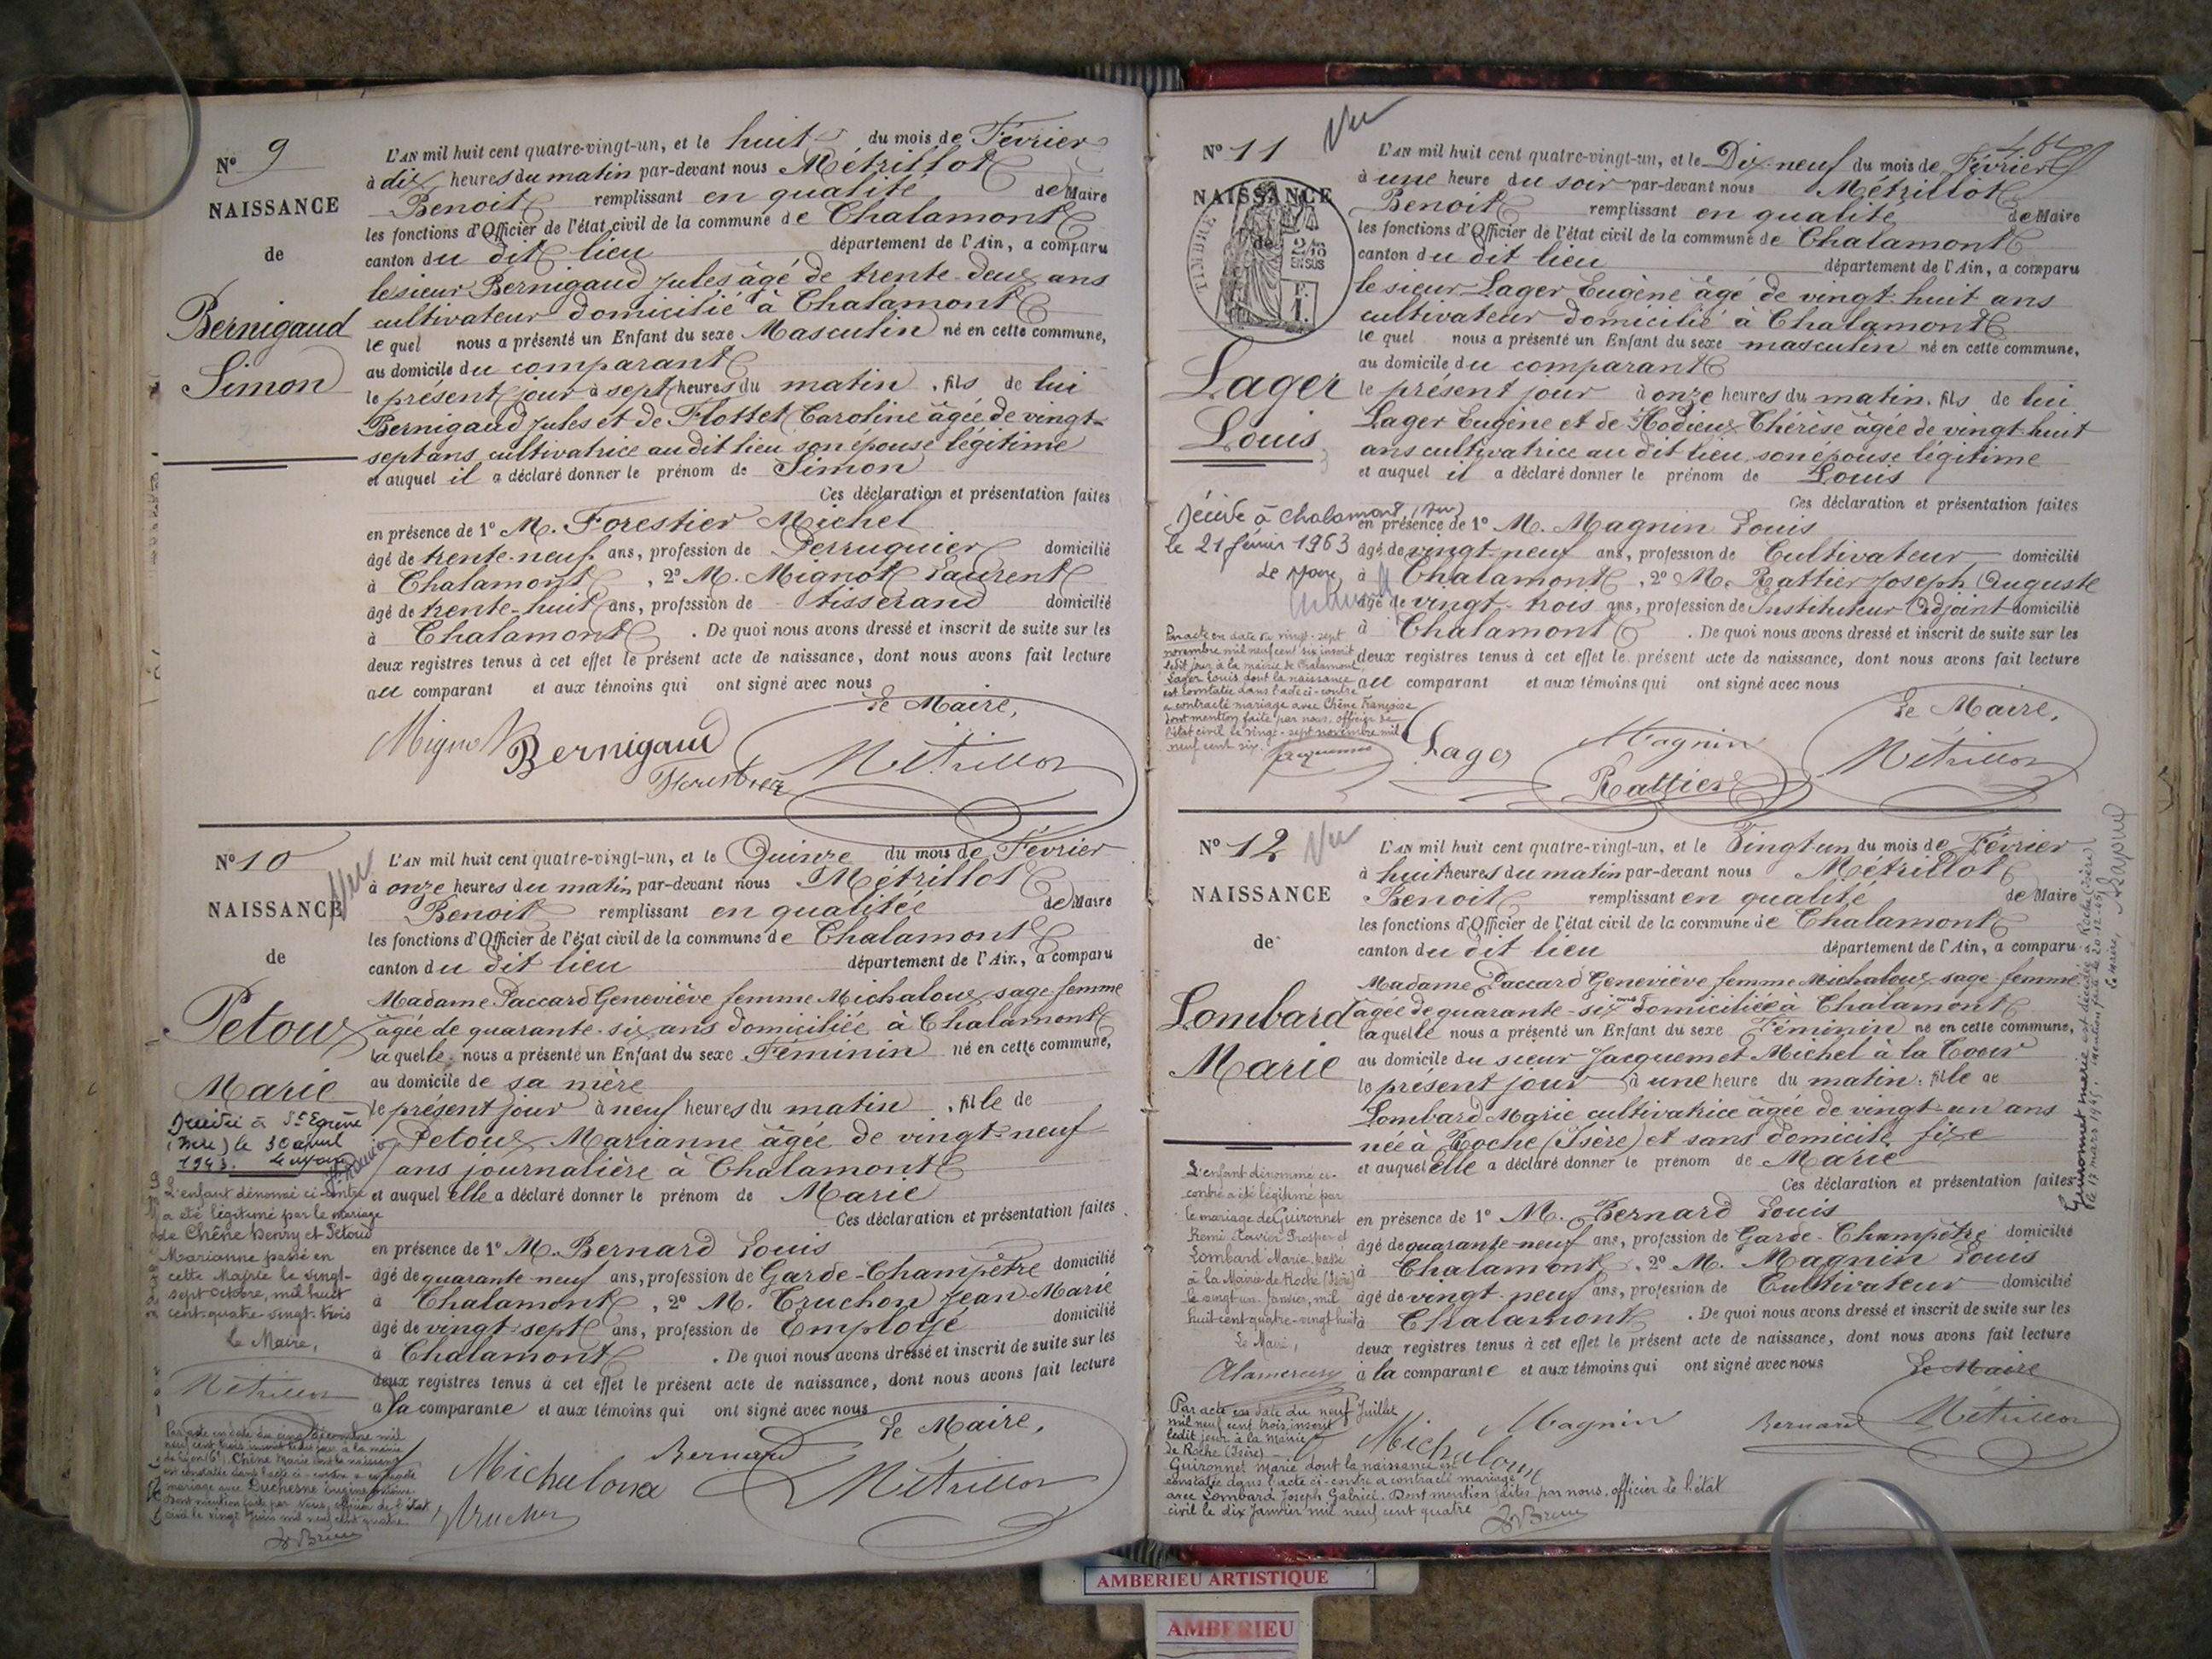 N° 9
NAISSANCE
de
Bernigaud
Simon
L'AN mil huit cent quatre-vingt-un, et le huit du mois de Février
à dix heures du matin par-devant nous Métrillot
Benoit remplissant en qualité de Maire
les fonctions d'Officier de l'état civil de la commune de Chalamont
canton du dit lieu département de l'Ain, a comparu
le sieur Bernigaud Jules âgé de trente-deux ans
cultivateur domicilié à Chalamont
lequel nous a présenté un Enfant du sexe Masculin né en cette commune,
au domicile du comparant
le présent jour à sept heures du matin, fils de lui
Bernigaud Jules et de Flottet Caroline âgée de vingt-
sept ans cultivatrice au dit lieu son épouse légitime
et auquel il a déclaré donner le prénom de Simon
Ces déclaration et présentation faites
en présence de 1° M. Forestier Michel
âgé de trente-neuf ans, profession de Perruquier domicilié
à Chalamont, 2° M. Mignot Laurent
âgé de trente-huit ans, profession de tisserand domicilié
à Chalamont. De quoi nous avons dressé et inscrit de suite sur les
deux registres tenus à cet effet le présent acte de naissance, dont nous avons fait lecture
au comparant et aux témoins qui ont signé avec nous
Le Maire,
Mignot Bernigaud Métrillot
Forestier
N° 10
Vu
NAISSANCE
de
Petoux
Marie
L'AN mil huit cent quatre-vingt-un, et le Quinze du mois de Février
à onze heures du matin par-devant nous Métrillot
Benoit remplissant en qualitée de Maire
les fonctions d'Officier de l'état civil de la commune de Chalamont
canton du dit lieu département de l'Ain, a comparu
Madame Paccard Geneviève femme Michaloux sage-femme
âgée de quarante-six ans domiciliée à Chalamont
laquelle nous a présenté un Enfant du sexe Féminin né en cette commune,
au domicile de sa mère
le présent jour à neuf heures du matin, fille de
Petoux Marianne âgée de vingt-neuf
ans journalière à Chalamont
et auquel elle a déclaré donner le prénom de Marie
Ces déclaration et présentation faites
en présence de 1° M. Bernard Louis
âgé de quarante neuf ans, profession de Garde-Champêtre domicilié
à Chalamont, 2° M. Truchon Jean Marie
âgé de vingt-sept ans, profession de Employé domicilié
à Chalamont. De quoi nous avons dressé et inscrit de suite sur les
deux registres tenus à cet effet le présent acte de naissance, dont nous avons fait lecture
à la comparante et aux témoins qui ont signé avec nous
Le Maire,
Bernard
Michaloux Métrillot
Truchon
(Isère) le 30 avril
1943. Le Maire
L'enfant dénomé ci-contre
a été légitimé par le mariage
de Chêne Henry et Petoud
Marianne passé en
cette Mairie le vingt-
sept octobre, mil huit
cent quatre-vingt-trois
Le Maire,
Métrillot
Par acte en date du cinq décembre mil
neuf cent trois inscrit ledit jour à la mairie
de Lyon (6e), Chêne Marie dont la naissance
est constatée dans l'acte ci-contre a contracté
mariage avec Duchesne
Dont mention faite par Nous, officier de l'état
civil le vingt Juin mil neuf cent quatre
N° 11
Vu
NAISSANCE
de
TIMBRE
EN SUS
Lager
Louis
L'AN mil huit cent quatre-vingt-un, et le Dix-neuf du mois de Février
à une heure du soir par-devant nous Métrillot
Benoit remplissant en qualité de Maire
les fonctions d'Officier de l'état civil de la commune de Chalamont
canton du dit lieu département de l'Ain, a comparu
le sieur Lager Eugène âgé de vingt-huit ans
cultivateur domicilié à Chalamont
lequel nous a présenté un Enfant du sexe masculin né en cette commune,
au domicile du comparant
le présent jour à onze heures du matin, fils de lui
Lager Eugène et de Hodieux Thérèse âgée de vingt-huit
ans cultivatrice au dit lieu, son épouse légitime
et auquel il a déclaré donner le prénom de Louis
Ces déclaration et présentation faites
en présence de 1° M. Magnin Louis
âgé de vingt-neuf ans, profession de Cultivateur domicilié
à Chalamont, 2° M. Rattier Joseph Auguste
âgé de vingt-trois ans, profession de Instituteur Adjoint domicilié
à Chalamont. De quoi nous avons dressé et inscrit de suite sur les
deux registres tenus à cet effet le présent acte de naissance, dont nous avons fait lecture
au comparant et aux témoins qui ont signé avec nous
Le Maire,
Lager Magnin Métrillot
Rattier
Décédé à Chalamont (Ain)
le 21 février 1963
Le Maire,
Par acte en date du vingt-sept
novembre mil neuf cent six inscrit
ledit jour à la mairie de Chalamont
Lager Louis dont la naissance
est constatée dans l'acte ci-contre
a contracté mariage avec Chêne Françoise
Dont mention faite par nous, officier de
l'état civil le vingt-sept novembre mil
neuf cent six.
N° 12
Vu
NAISSANCE
de
Lombard
Marie
L'AN mil huit cent quatre-vingt-un, et le Vingt-un du mois de Février
à huit heures du matin par-devant nous Métrillot
Benoit remplissant en qualité de Maire
les fonctions d'Officier de l'état civil de la commune de Chalamont
canton du dit lieu département de l'Ain, a comparu
Madame Paccard Geneviève femme Michaloux sage-femme
âgée de quarante-six ans domiciliée à Chalamont
laquelle nous a présenté un Enfant du sexe Féminin né en cette commune,
au domicile du sieur Jacquemet Michel à la Cour
le présent jour à une heure du matin, fille de
Lombard Marie cultivatrice âgée de vingt-un ans
née à Roche (Isère) et sans domicile fixe
et auquel elle a déclaré donner le prénom de Marie
Ces déclaration et présentation faites
en présence de 1° M. Bernard Louis
âgé de quarante-neuf ans, profession de Garde-Champêtre domicilié
à Chalamont, 2° M. Magnin Louis
âgé de vingt-neuf ans, profession de Cultivateur domicilié
à Chalamont. De quoi nous avons dressé et inscrit de suite sur les
deux registres tenus à cet effet le présent acte de naissance, dont nous avons fait lecture
à la comparante et aux témoins qui ont signé avec nous
Le Maire
Magnin Bernard Métrillot
Michaloux
L'enfant dénommé ci-
contre a été légitimé par
le mariage de Guironnet
Rémi Xavier Prosper et
Lombard Marie passé
à la Mairie de Roche (Isère)
le vingt un Janvier, mil
huit cent quatre-vingt huit
Le Maire,
Par acte en date du neuf Juillet
mil neuf cent trois, inscrit
ledit jour à la Mairie
de Roche (Isère)
Guironnet Marie dont la naissance est
constatée dans l'acte ci-contre a contracté mariage
avec Lombard Joseph Gabriel. Dont mention faites par nous, officier de l'état
civil le dix Janvier mil neuf cent quatre
Guironnet Marie est décédée à Roche (Isère)
le 17 mars 1945, mention faite le 20-12-45
AMBERIEU ARTISTIQUE
AMBERIEU